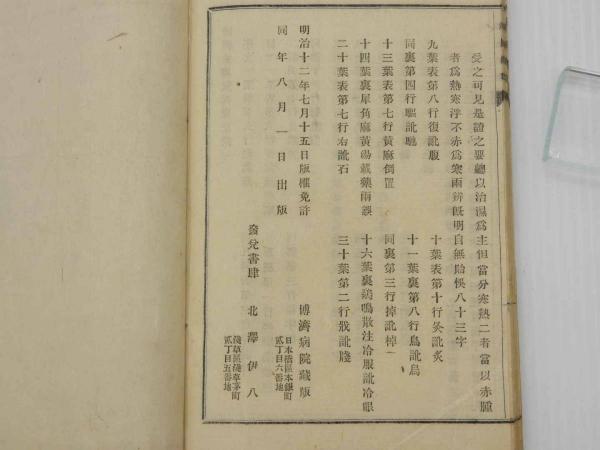 受之可見是證之要總以治濕爲主但當分寒熱二者當以赤腫
者爲熱寒浮不赤爲寒兩辨旣明自無貽悞八十三字
九葉表第八行復訛腹
十葉表第十行灸訛炙
同裏第四行驅訛馳
十一葉裏第八行鳥訛烏
十三葉表第七行黃麻倒置
同裏第三行掉訛棹
十四葉裏犀角麻黃湯載藥兩誤
十六葉裏鷄鳴散注冷服訛冷眼
二十葉表第七行右訛石
三十葉第二行戕訛牋
明治十二年七月十五日版權免許
同年八月一日出版
博濟病院藏版
日本橋區本銀町
貳丁目六番地
發兌書肆 北澤伊八
淺草區淺草茅町
貳丁目五番地